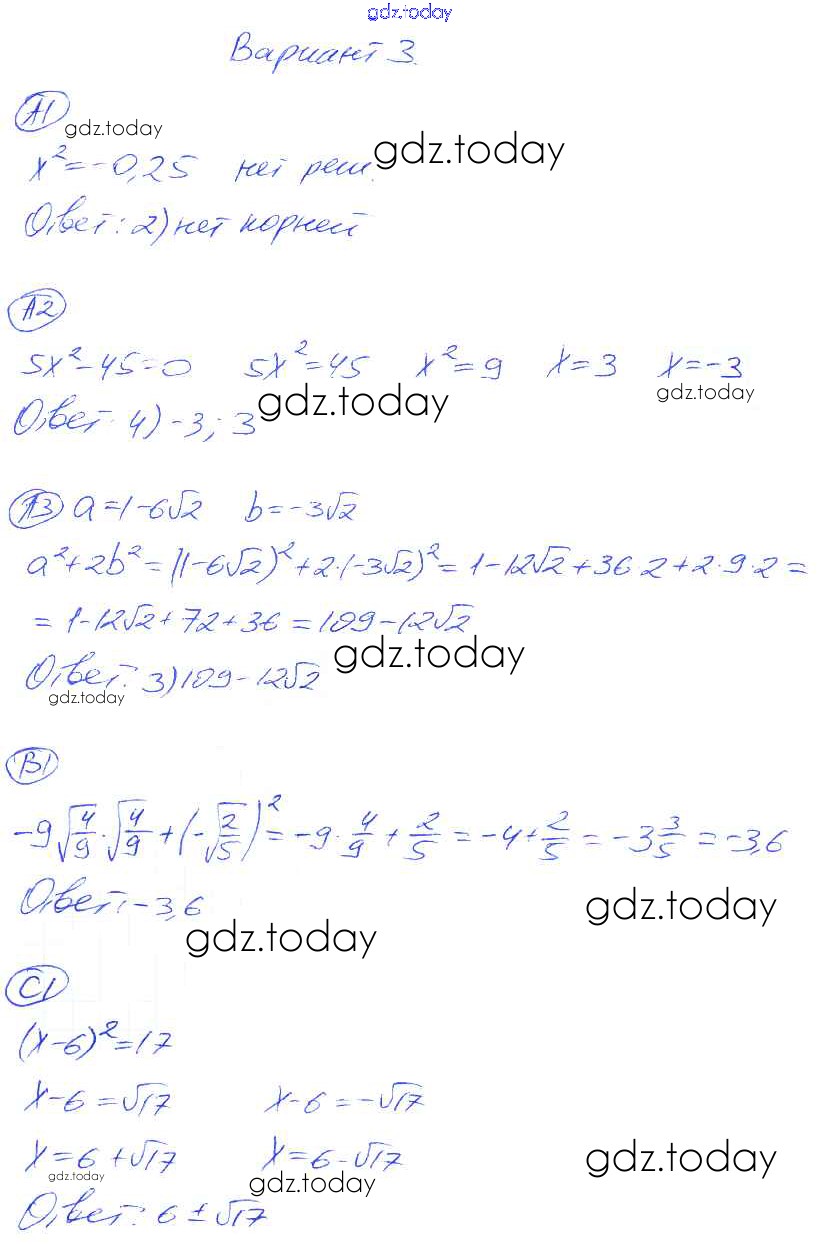 gdz.today
Вариант 3.
А1
gdz.today
gdz.today
x² = -0,25 нет реш.
Ответ: 2) нет корней
А2
5x² - 45 = 0 5x² = 45 x² = 9 x = 3 x = -3
gdz.today
gdz.today
Ответ: 4) -3; 3
А3 a = 1 - 6√2 b = -3√2
a² + 2b² = (1 - 6√2)² + 2·(-3√2)² = 1 - 12√2 + 36·2 + 2·9·2 =
= 1 - 12√2 + 72 + 36 = 109 - 12√2
gdz.today
Ответ: 3) 109 - 12√2
gdz.today
В1
-9√(4/9)·√(4/9) + (-√(2/5))² = -9·4/9 + 2/5 = -4 + 2/5 = -3 3/5 = -3,6
Ответ: -3,6
gdz.today
gdz.today
С1
(x - 6)² = 17
x - 6 = √17 x - 6 = -√17
x = 6 + √17 x = 6 - √17
gdz.today
gdz.today
gdz.today
Ответ: 6 ± √17